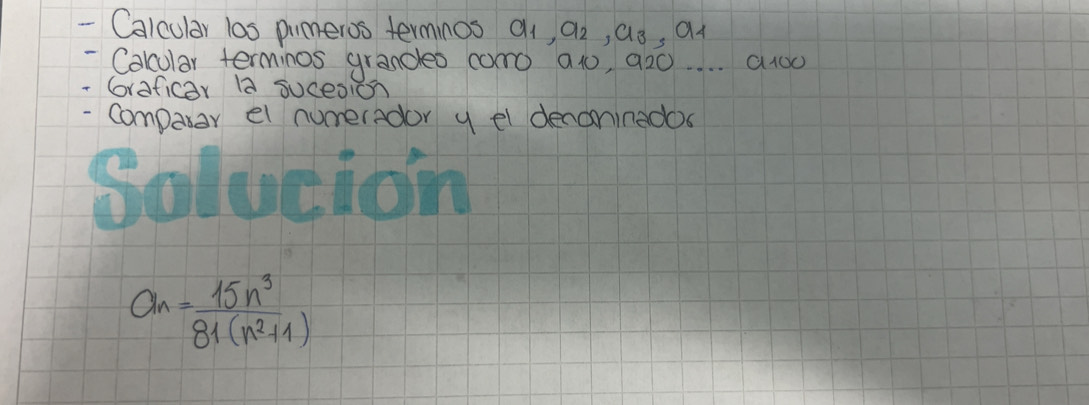 - Calcular los primeros terminos a1, a2, a3, a4
- Calcular terminos grandes como a10, a20 .... a100
- Graficar la sucesión
- Comparar el numerador y el denominador
Solución
an = 15n³ / 81(n²+1)